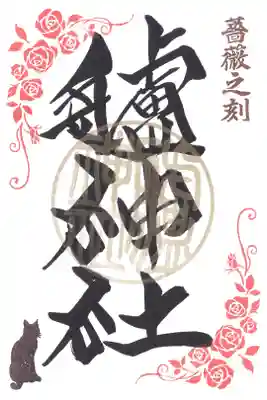 薔薇之刻
鱸神社